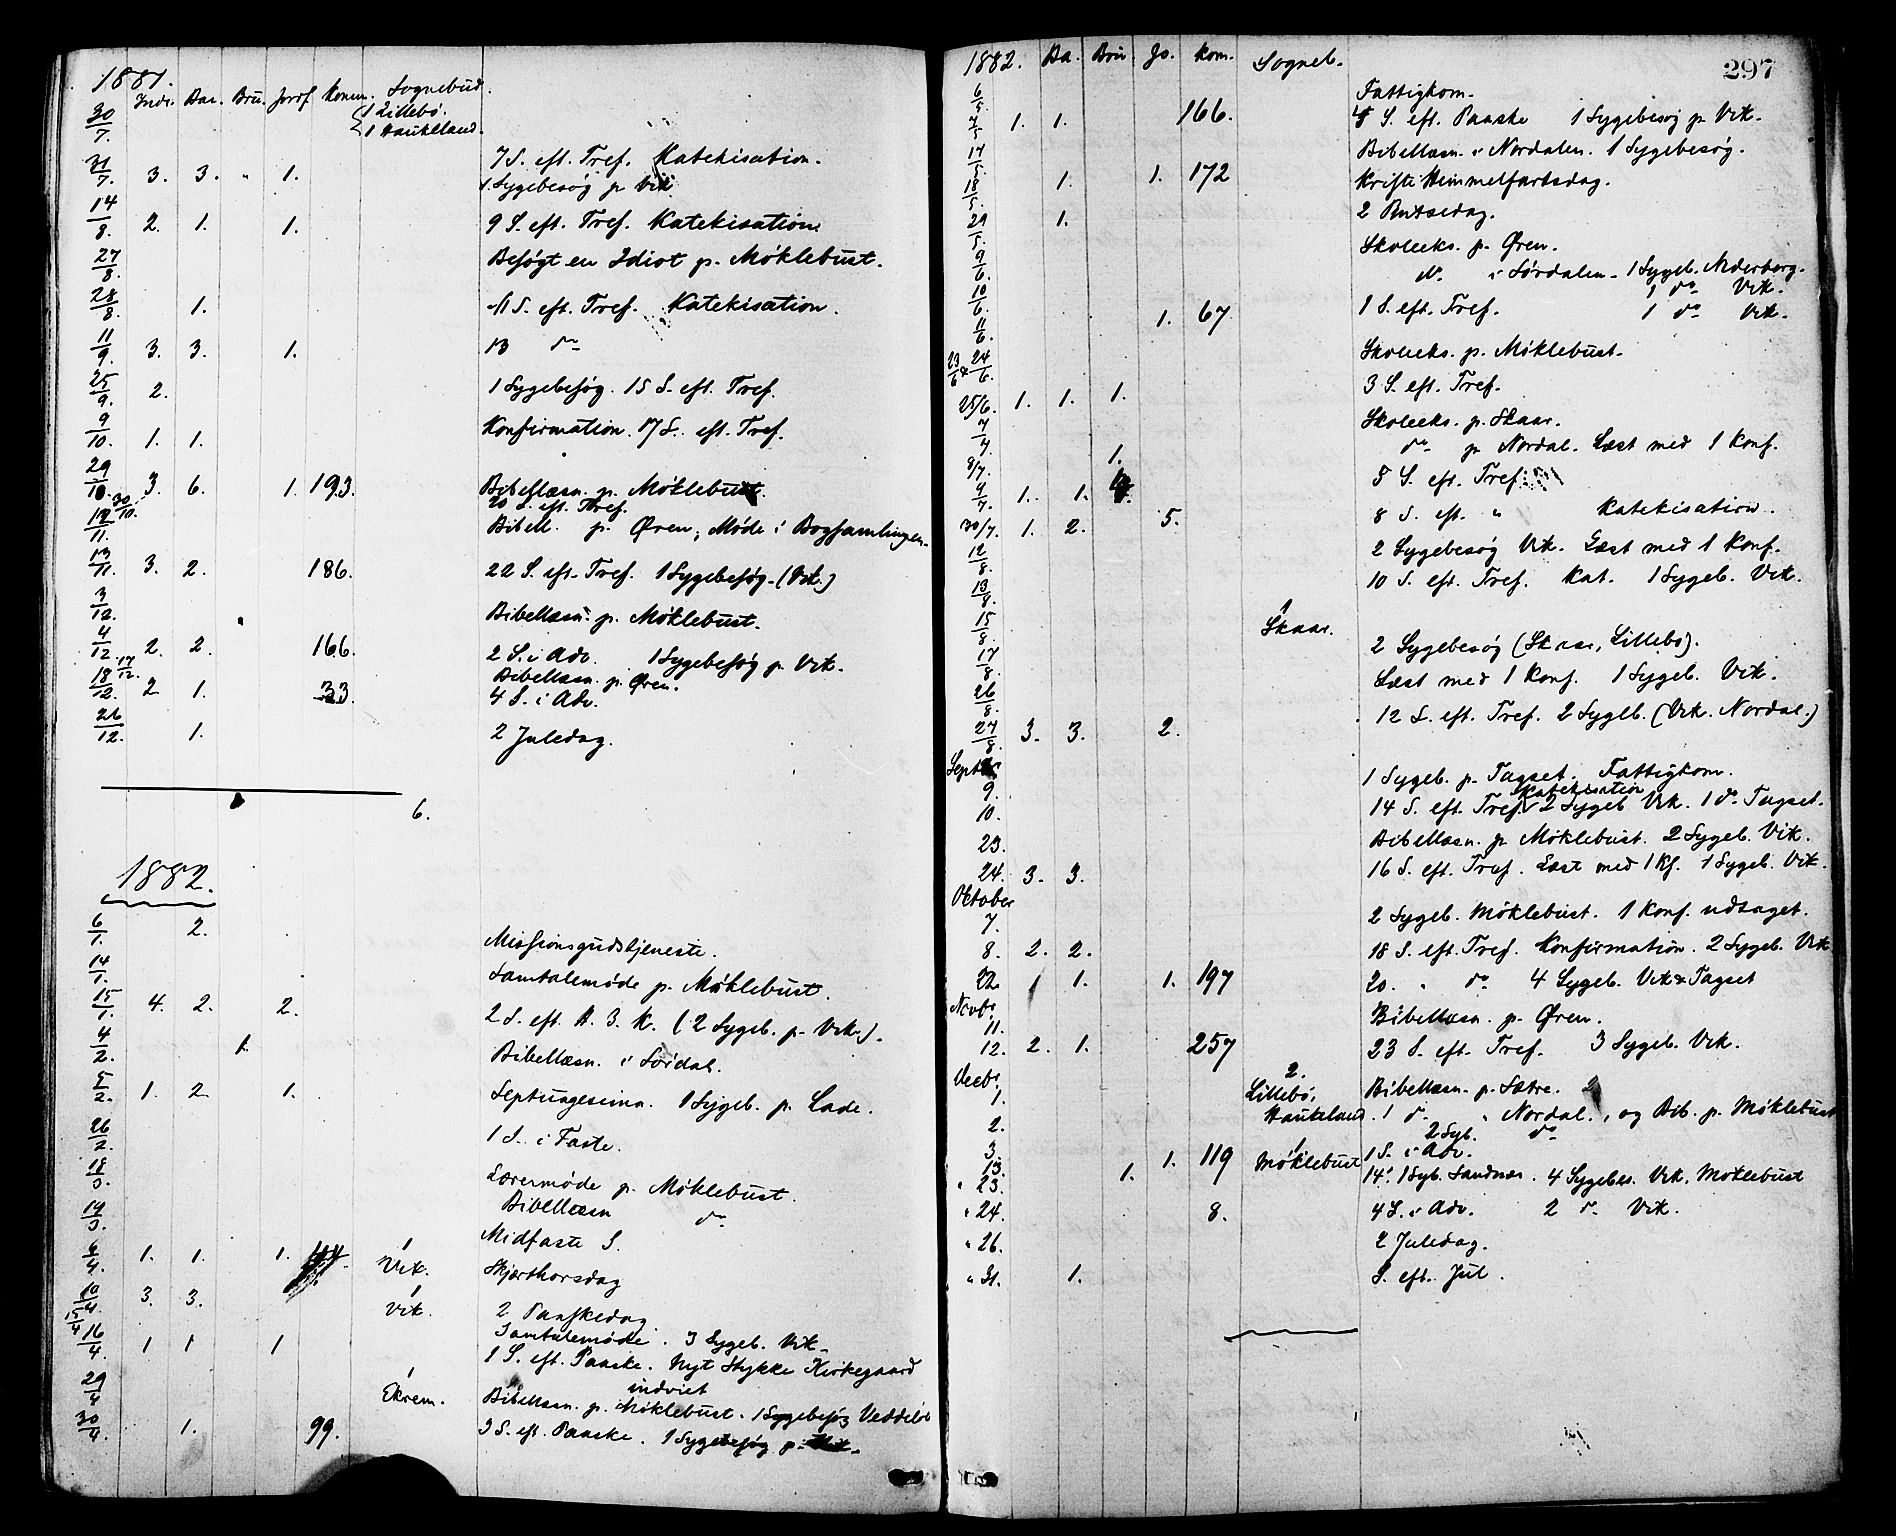 1881.
Indt. Bar. Bru. Jordf. Komm. Sognebud.
30/7. 1 Lillebø.
1 Haukeland.
7 S. eft. Tref. Katekisation.
31/7. 3. 3. " 1. 1 Sygebesøg p. Vik
14/8. 2. 1. 1. 9 S. eft. Tref. Katekisation.
27/8. Besøgt en Idiot p. Møklebust.
28/8. 1. 11 S. eft. Tref. Katekisation.
11/9. 3. 3. 1. 13 do
25/9. 2. 1 Sygebesøg. 15 S. eft. Tref.
9/10. 1. 1. Konfirmation. 17 S. eft. Tref.
29/10. 3. 6. 1. 193. Bibellæsn. p. Møklebust.
30/10. 20 S. eft. Tref.
12/11. Bibell. p. Øren, Møde i Bogsamlingen.
13/11. 3. 2. 186. 22 S. eft. Tref. 1 Sygebesøg. (Vik.)
3/12. Bibellæsn. p. Møklebust.
4/12. 2. 2. 166. 2 S. i Adv. 1 Sygebesøg p. Vik.
17/12. Bibellæsn. p. Øren.
18/12. 2 1. 33. 4 S. i Adv.
26/12. 1. 2 Juledag.
6.
1882.
6/1. 2. Missionsgudstjeneste.
14/1. Samtalemøde p. Møklebust.
15/1. 4. 2. 2. 2 S. eft. H. 3. K. (2 Sygeb. p. Vik.).
4/2. 1. Bibellæsn. i Sørdal.
5/2. 1. 2 1. Septuagesima. 1 Sygeb. p. Lade.
26/2. 1 S. i Faste.
18/3. Lærermøde p. Møklebust.
Bibellæsn do
19/3. Midfaste S.
6/4. 1. 1. 1. 44. 1 Vik. Skjærthorsdag
10/4. 3. 3. 1 Vik. 2 Paaskedag
15/4 Samtalemøde. 3 Sygeb. Vik.
16/4. 1 1 1 1 S. eft. Paaske. Nyt Stykke Kirkegaard
indviet
29/4 1 Ekrem. Bibellæsn. p. Møklebust. 1 Sygebesøg Veddelø
30/4. 1. 99. 3 S. eft. Paaske. 1 Sygebesøg p. Vik.
297
1882. Ba. Bru. Jo. Kom. Sogneb.
6/5 Fattigkom.
7/5 1. 1. 166. 4 S. eft. Paaske 1 Sygebesøg p. Vik.
14/5 Bibellæsn. i Nordalen. 1 Sygebesøg.
18/5 1. 1. 172 Kristi Himmelfartsdag.
29/5. 1. 2 Pintsedag.
9/6. Skoleeks. p. Øren.
10/6. do i Sørdalen. 1 Sygeb. Nederberg.
1 do Vik.
11/6. 1. 67 1 S. eft. Tref. 1 do Vik.
23/6 & 24/6. Skoleeks. p. Møklebust.
25/6. 1. 1. 1. 3 S. eft. Tref.
7/7. Skoleeks. p. Skaar.
8/7. 1. do p. Nordal. Læst med 1 Konf.
9/7. 1. 1. 5 S. eft. Tref.
30/7. 1. 2. 5. 8 S. eft. " Katekisation.
12/8. 2 Sygebesøg Vik. Læst med 1 Konf.
13/8. 10 S. eft. Tref. Kat. 1 Sygeb. Vik.
15/8. 1 Skaar. 2 Sygebesøg (Skaar, Lillebø).
17/8. Læst med 1 Konf. 1 Sygeb. Vik.
26/8.
27/8. 3. 3. 2. 12 S. eft. Tref. 2 Sygeb. (Vik. Nordal.)
Septbr
9. 1 Sygeb. p. Tagset. Fattigkom.
Katekisation
10. 14 S. eft. Tref. 2 Sygeb Vik. 1 do Tagset.
23. Bibellæsn. p. Møklebust. 2 Sygeb. Vik.
24. 3. 3. 16 S. eft. Tref. Læst med 1 Kf. 1 Sygeb. Vik.
Oktober
7. 2 Sygeb. Møklebust. 1 Konf. udtaget.
8. 2. 2. 18 S. eft. Tref. Konfirmation. 2 Sygeb. Vik
22. 1 1. 1. 197 20. " do 4 Sygeb. Vik & Tagset
Novbr.
11. Bibellæsn. p. Øren.
12. 2. 1. 257 23 S. eft. Tref. 3 Sygeb. Vik.
Decbr.
1. 2. Lillebø, Bibellæsn. p. Sætre.
2. Haukeland. 1 do " Nordal., og Bib. p. Møklebust
2 Syb. do
3. 1. 119 1 S. i Adv.
13. 1. 1 Møklebust 14. 1 Syb. Sandnes. 4 Sygebes. Vik. Møklebust
" 23.
" 24. 8. 4 S. i Adv. 2 do Vik.
" 26. 2 Juledag.
" 31. 1. S. eft. Jul.